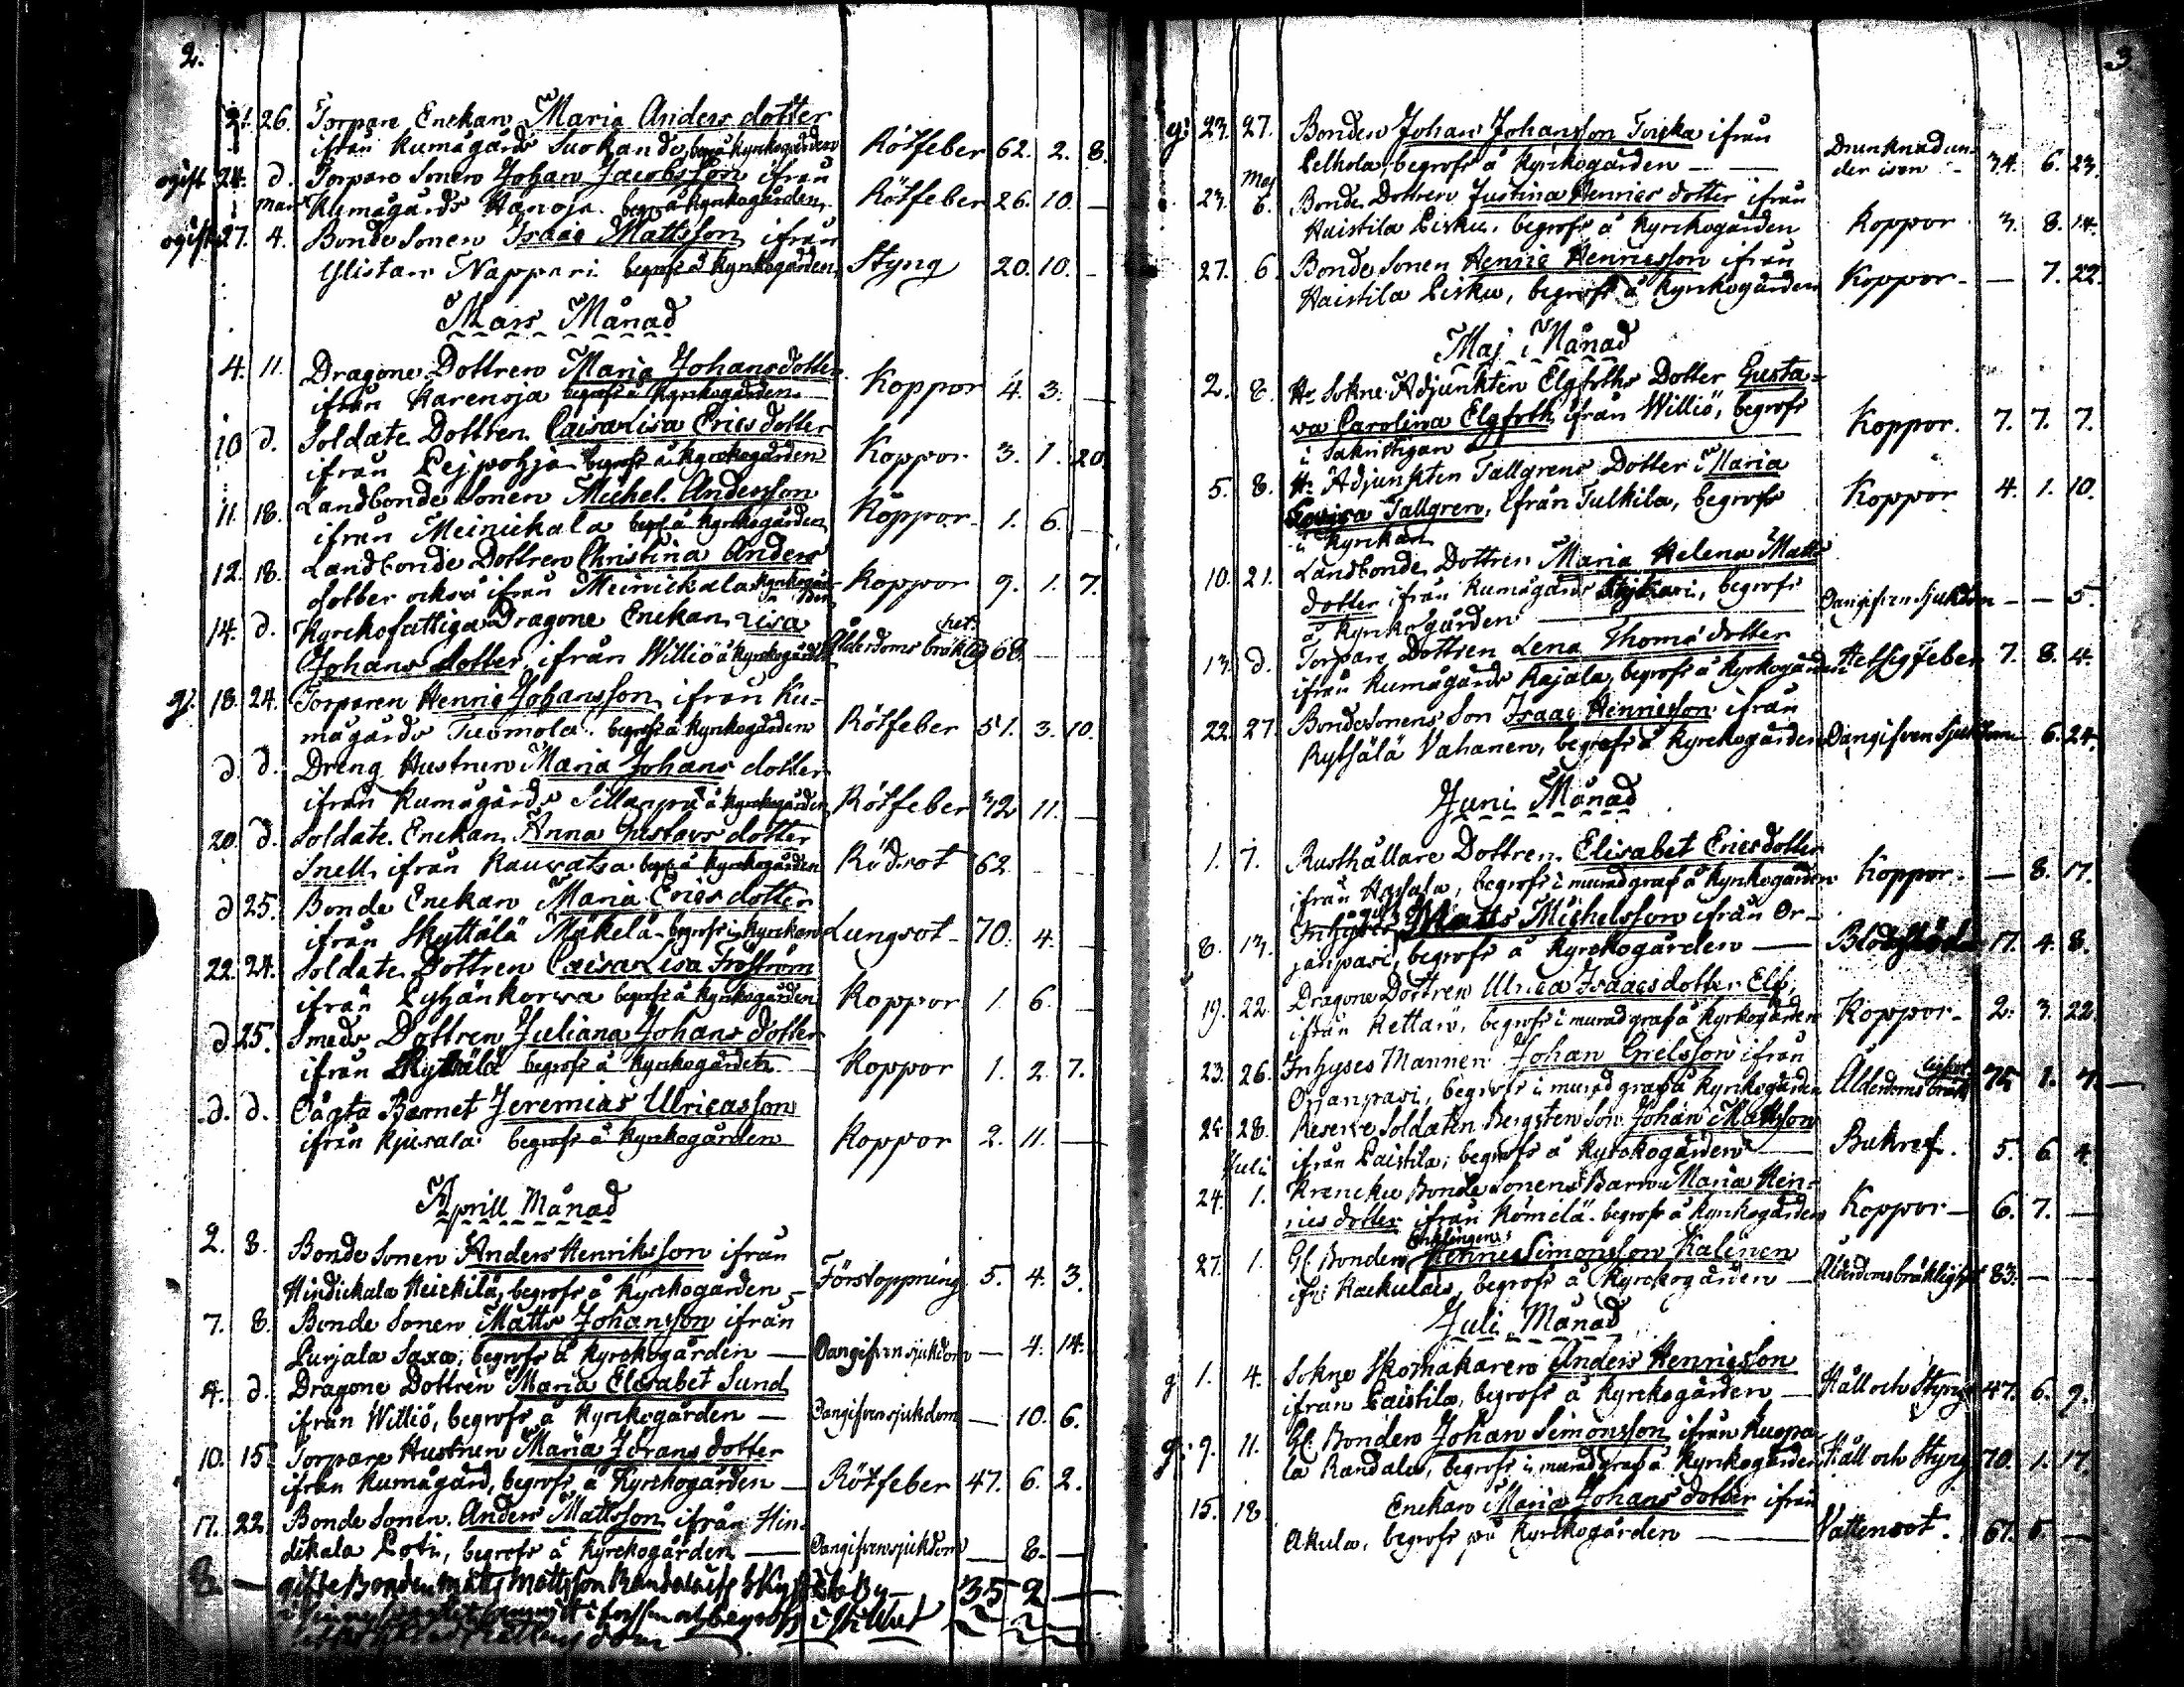 2.
21. 26. Torpare Enckan Maria Anders dotter
ifrån Kumågårds Suokando, begr. å Kyrkogården Rötfeber 62. 2. 8.
ogift 24. d. Torpare Sonen Johan Jacobsson ifrån
Mars Kumågårds Hanoja. begr. å Kyrkogården Rötfeber 26. 10. —
ogift 27. 4. Bonde Sonen Isaac Mattsson ifrån
Ylistaro Nappari begrofs å Kyrkogården Styng 20. 10. —
Mars Månad
4. 11. Dragone Dottren Maria Johansdotter
ifrån Karenoja begrofs å Kyrkogården Koppor 4. 3. —
10 d. Soldate Dottren Caisa Lisa Erics dotter
ifrån Pejpohja begrofs å Kyrckogården Koppor 3. 1. 20
11. 18. Landbonde Sonen Michel Andersson
ifrån Meinickala begrofs å Kyrkogården Koppor 1. 6. —
12. 18. Landbonde Dottren Christina Anders
dotter också ifrån Meinickala Kyrkogården Koppor 9. 1. 7.
14. d. Kyrckofattiga Dragone Enckan Lisa
Johans dotter ifrån Williö å Kyrckogården Ålderdoms bräklighet 68. — —
g. 18. 24. Torparen Henric Johansson ifrån Ku-
mågårds Tuomola. begrofs å Kyrkogården Rötfeber 51. 3. 10.
d. d. Dreng Hustrun Maria Johans dotter
ifrån Kumågårds Sillanpä å Kyrckogården Rötfeber 42 11. —
20. d. Soldate Enckan Anna Gustavs dotter
Snell, ifrån Kauvatsa begr. å Kyrckogården Rödsot 62. — —
d 25. Bonde Enckan Maria Erics dotter
ifrån Skyttälä Mäkelä begrofs i Kyrckan Lungsot 70. 4. —
22. 24. Soldate Dottren Caisa Lisa Froström
ifrån Lyhänkorva begrofs å Kyrkogården Koppor 1. 6. —
d 25. Smeds Dottren Juliana Johans dotter
ifrån begrofs å Kyrkogården Koppor 1. 2. 7.
d. d. Oägta Barnet Jeremias Ulricasson
ifrån begrofs å Kyrkogården Koppor 2. 11. —
Aprill Månad
2. 8. Bonde Sonen Anders Henriksson ifrån
Hindickala Heickilä, begrofs å Kyrckogården Förstoppning 5. 4. 3.
7. 8. Bonde Sonen Matts Johansson ifrån
Purjala Saxa, begrofs å Kyrckogården — Oangifven sjukdom — 4. 14.
4. d. Dragone Dottren Maria Elisabet Sund
ifrån Williö, begrofs å Kyrckogården — Oangifven sjukdom — 10. 6.
10. 15. Torpare Hustrun Maria Johans dotter
ifrån Kumågård, begrofs å Kyrckogården — Rötfeber 47. 6. 2.
17. 22. Bonde Sonen Anders Mattsson ifrån Hin-
dikala Loti, begrofs å Kyrckogården — Oangifven sjukdom — 8. —
8. — gifte Bonden Matts Mattsson By — 35 2 —
begrofs i Stillhet
3
g: 23. 27. Bonden Johan Johansson ifrån
Lelhola, begrofs å Kyrckogården — Drunknad un-
der isen 34. 6. 23.
Maj
23. 6. Bonde Dottren Justina Henrics dotter ifrån
Haistila Pisku, begrofs å Kyrckogården Koppor 3. 8. 14.
27. 6. Bonde Sonen Henric Henricsson ifrån
Haistila Pisku, begrofs å Kyrckogården Koppor — 7. 22.
Maj Månad
2. 8. Hr Sokne Adjunkten Elgfoths Dotter Gusta-
va Carolina Elgfoth, ifrån Williö, begrofs
i Sakristigan Koppor. 7. 7. 7.
5. 8. Hr Adjunkten Tallgrens Dotter Maria
Lovisa Tallgren, ifrån Tulkila, begrofs
i Kyrckan Koppor 4. 1. 10.
10. 21. Landbonde Dottren Maria Helena Matts
dotter ifrån Kumågårds begrofs
å Kyrckogården — Oangifven Sjukdom — — 5.
13. d. Torpare Dottren Lena Thomä dotter
ifrån Kumågårds Rajala, begrofs å Kyrkogården Hetsigfeber 7. 8. 4.
22. 27. Bonde Sonens Son Isaac Henricsson ifrån
Rytsälä Vahanen, begrofs å Kyrckogården Oangifven sjukdom 6. 24.
Juni Månad
1. 7. Rusthållare Dottren Elisabet Ericsdotter
ifrån begrofs i murad graf å Kyrkogården Koppor — 8. 17.
8. 13. Matts Michelsson ifrån Or-
janpari, begrofs å Kyrckogården — 17. 4. 8.
19. 22. Dragone Dottren Ulrica Isaacsdotter Elf,
ifrån Kettara, begrofs i murad graf å Kyrkogården Koppor 2. 3. 22.
23. 26. Inhyses Mannen Johan Grelsson ifrån
Orjanpari, begrofs i murad graf å Kyrkogården Ålderdoms bräcklighet 75. 1. 4. —
25. 28. Reserve Soldaten Bergsten Son Johan Mattsson
ifrån Paistila, begrofs å Kyrckogården Bukref. 5. 6. 4.
Juli
24. 1. Krencku Bonde Sonens Barn Maria Hen-
rics dotter ifrån Kömelä. begrofs å Kyrkogården Koppor — 6. 7. —
27. 1. Gl. Bonden Enklingen Henric Simonsson Kalinen
ifr. begrofs å Kyrckogården — Ålderdoms bräklighet 83. — —
Juli Månad
g 1. 4. Sokne Skomakaren Anders Henricsson
ifrån Paistila, begrofs å Kyrckogården — Håll och Styng 47. 6. 9.
g: 9. 11. Gl. Bonden Johan Simonsson ifrån Kuopa-
la Randala, begrofs i murad graf å Kyrckogården Håll och Styng 70. 1. 17.
15. 18. Enckan Maria Johans dotter ifrån
Akula, begrofs på Kyrckogården — Vattensot. 67. 5. —